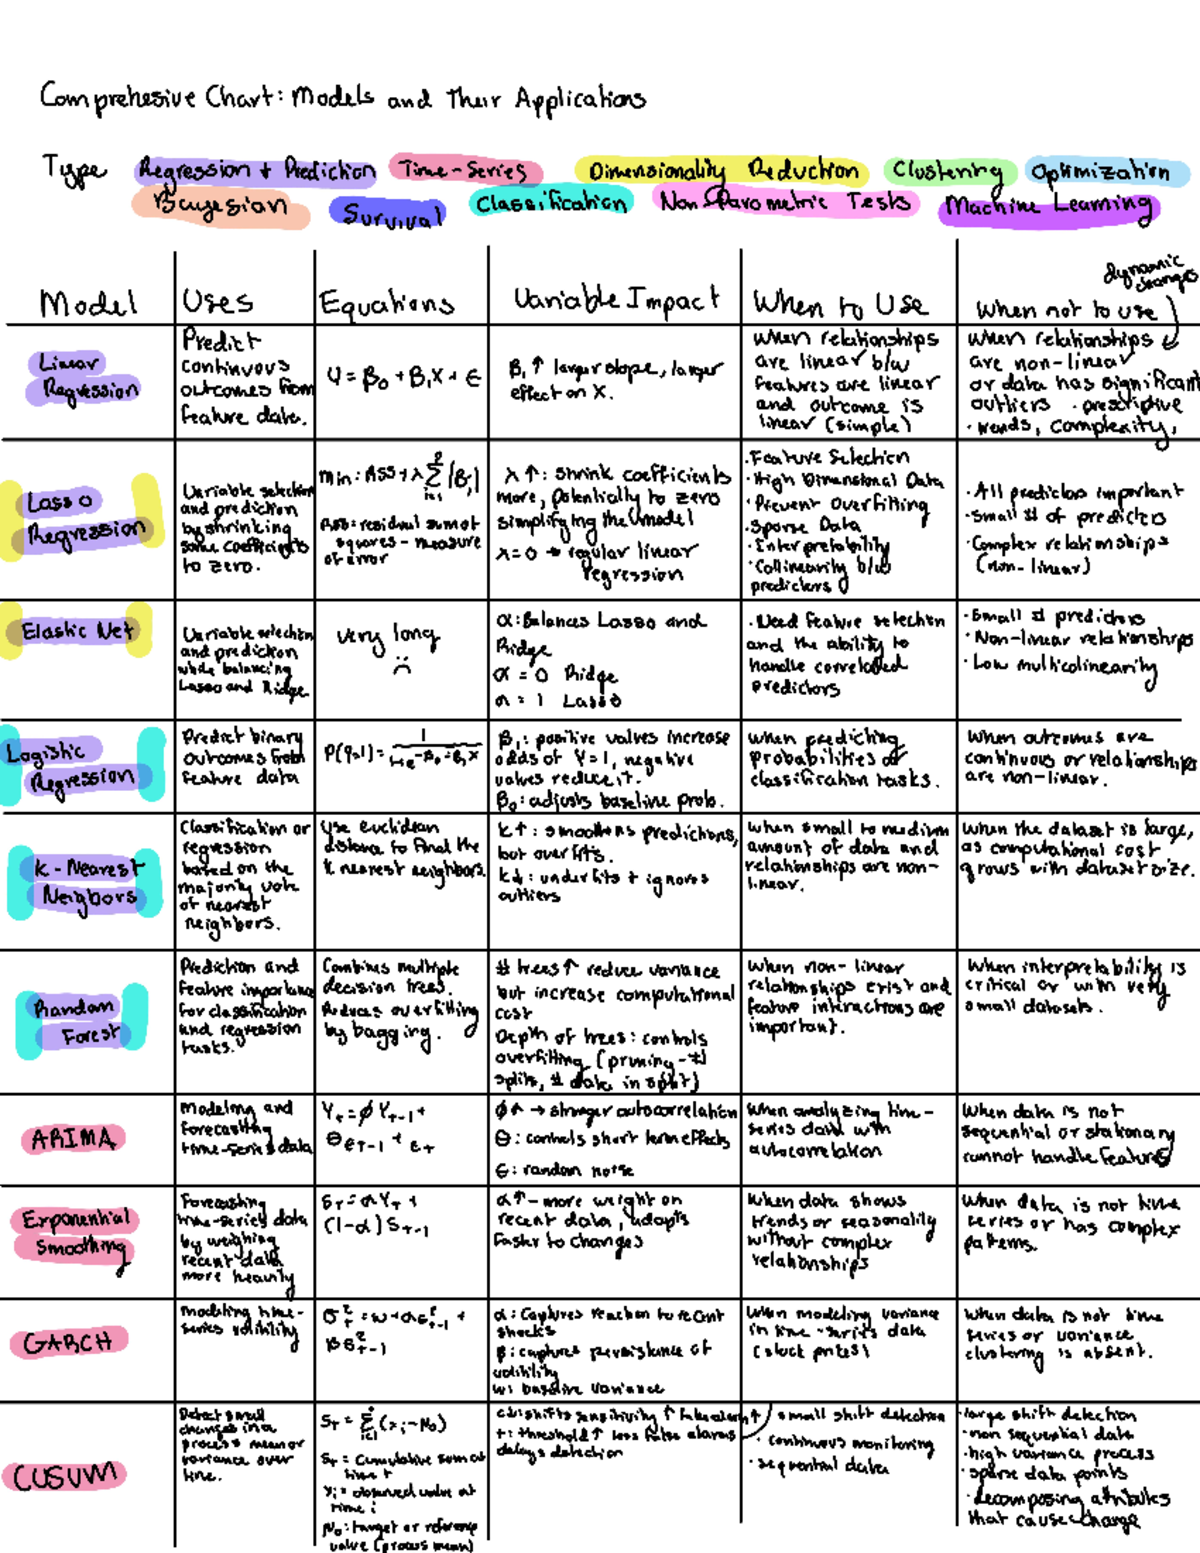 Comprehesive Chart: Models and Their Applications
Type Regression + Prediction Time-Series Dimensionality Reduction Clustering Optimization
Bayesian Survival Classification Non Parametric Tests Machine Learning
dynamic
changes
Model Uses Equations Variable Impact When to Use When not to use
Linear
Regression
Predict
continuous
outcomes from
feature data.
Y = β₀ + β₁X + ε
β₁ ↑ larger slope, larger
effect on X.
When relationships
are linear b/w
features are linear
and outcome is
linear (simple)
When relationships
are non-linear
or data has significant
outliers · prescriptive
· trends, complexity,
Lasso
Regression
Variable selection
and prediction
by shrinking
some coefficients
to zero.
min: RSS + λ Σ |βⱼ|
RSS: residual sum of
squares - measure
of error
λ ↑: shrink coefficients
more, potentially to zero
simplifying the model
λ=0 → regular linear
regression
· Feature Selection
· High Dimensional Data
· Prevent Overfitting
· Sparse Data
· Interpretability
· Collinearity b/w
predictors
· All predictors important
· Small # of predictors
· Complex relationships
(non-linear)
Elastic Net
Variable selection
and prediction
while balancing
Lasso and Ridge
very long
α: Balances Lasso and
Ridge
α = 0 Ridge
α = 1 Lasso
· Need feature selection
and the ability to
handle correlated
predictors
· Small # predictors
· Non-linear relationships
· Low multicolinearity
Logistic
Regression
Predict binary
outcomes from
feature data
β₁: positive values increase
odds of Y=1, negative
values reduce it.
β₀: adjusts baseline prob.
When predicting
probabilities of
classification tasks.
When outcomes are
continuous or relationships
are non-linear.
K-Nearest
Neighbors
Classification or
regression
based on the
majority vote
of nearest
neighbors.
Use euclidian
distance to find the
K nearest neighbors.
K↑: smoothens predictions,
but overfits.
K↓: underfits + ignores
outliers
When small to medium
amount of data and
relationships are non-
linear.
When the dataset is large,
as computational cost
grows with dataset size.
Random
Forest
Prediction and
feature importance
for classification
and regression
tasks.
Combines multiple
decision trees.
Reduces overfitting
by bagging.
# trees ↑ reduce variance
but increase computational
cost
Depth of trees: controls
overfitting (pruning - #
splits, # data in split)
When non-linear
relationships exist and
feature interactions are
important.
When interpretability is
critical or with very
small datasets.
ARIMA
Modeling and
forecasting
time-series data
Yₜ = φYₜ₋₁ +
θεₜ₋₁ + εₜ
φ↑ → stronger autocorrelation
θ: controls short term effects
ε: random noise
When analyzing time-
series data with
autocorrelation
When data is not
sequential or stationary
cannot handle features
Exponential
Smoothing
Forecasting
time-series data
by weighing
recent data
more heavily
Sₜ = αYₜ +
(1-α)Sₜ₋₁
α↑ - more weight on
recent data, adapts
faster to changes
When data shows
trends or seasonality
without complex
relationships
When data is not time
series or has complex
patterns.
GARCH
modeling time-
series volibility
α: Captures reaction to recent
shocks
β: captures persistance of
volibility
w: baseline variance
When modeling variance
in time-series data
(stock prices)
When data is not time
series or variance
clustering is absent.
CUSUM
Detect small
changes in a
process mean or
variance over
time.
Sₜ = Σ (xᵢ - μ₀)
Sₜ = Cumulative sum at
time t
xᵢ = observed value at
time i
μ₀: target or reference
value (process mean)
shifts sensitivity ↑ false alarm ↑
t: threshold ↑ less false alarms
delays detection
small shift detection
· continuous monitoring
· sequential data
· large shift detection
· non sequential data
· high variance process
· sparse data points
· decomposing attributes
that cause change